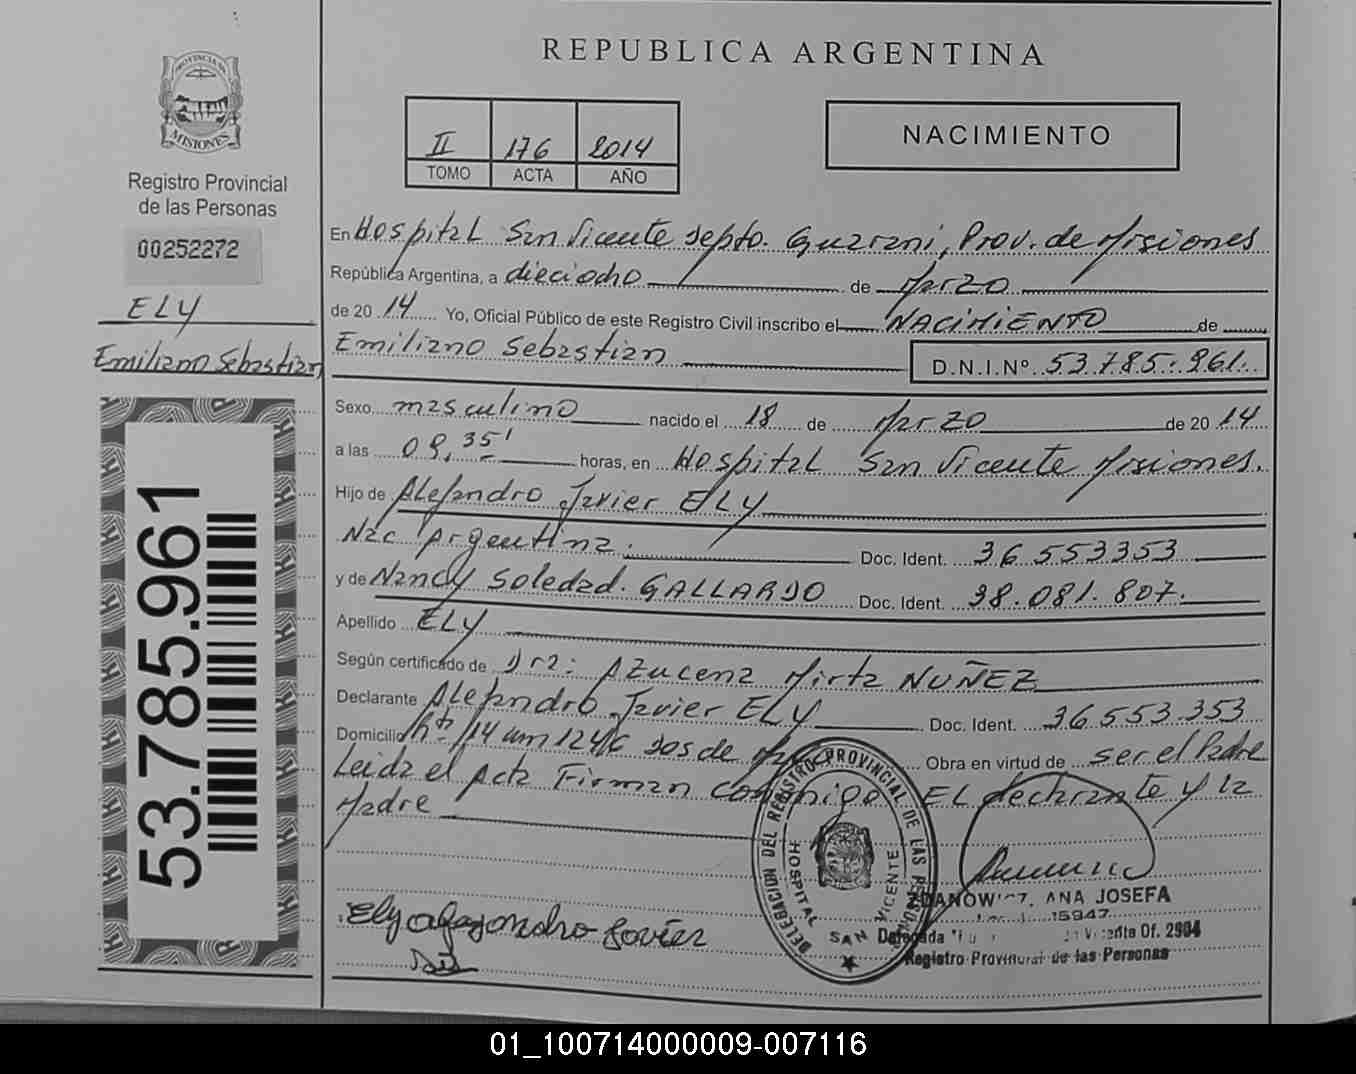 PROVINCIA DE
MISIONES
Registro Provincial
de las Personas
00252272
ELY
Emiliano Sebastian
53.785.961
REPUBLICA ARGENTINA
II 176 2014
TOMO ACTA AÑO
NACIMIENTO
En Hospital San Vicente Depto. Guarani, Prov. de Misiones
República Argentina, a dieciocho de Marzo
de 20 14 Yo, Oficial Público de este Registro Civil inscribo el NACIMIENTO de
Emiliano Sebastian D.N.I.Nº 53.785.961.
Sexo masculino nacido el 18 de Marzo de 20 14
a las 09,35' horas, en Hospital San Vicente Misiones.
Hijo de Alejandro Javier ELY
Nac Argentina. Doc. Ident. 36.553353
y de Nancy Soledad. GALLARDO Doc. Ident. 38.081.807.
Apellido ELY
Según certificado de Dra: Azucena Mirta NUÑEZ
Declarante Alejandro Javier ELY Doc. Ident. 36.553.353
Domicilio 114 dos de Obra en virtud de ser el Padre
Leida el Acta Firman Conmigo EL declarante y la
Madre
DELEGACION DEL REGISTRO PROVINCIAL DE LAS PERSONAS
HOSPITAL SAN VICENTE
Ely Javier
ANA JOSEFA
15947
Delegada Of. 2904
Registro Provincial de las Personas
01_100714000009-007116